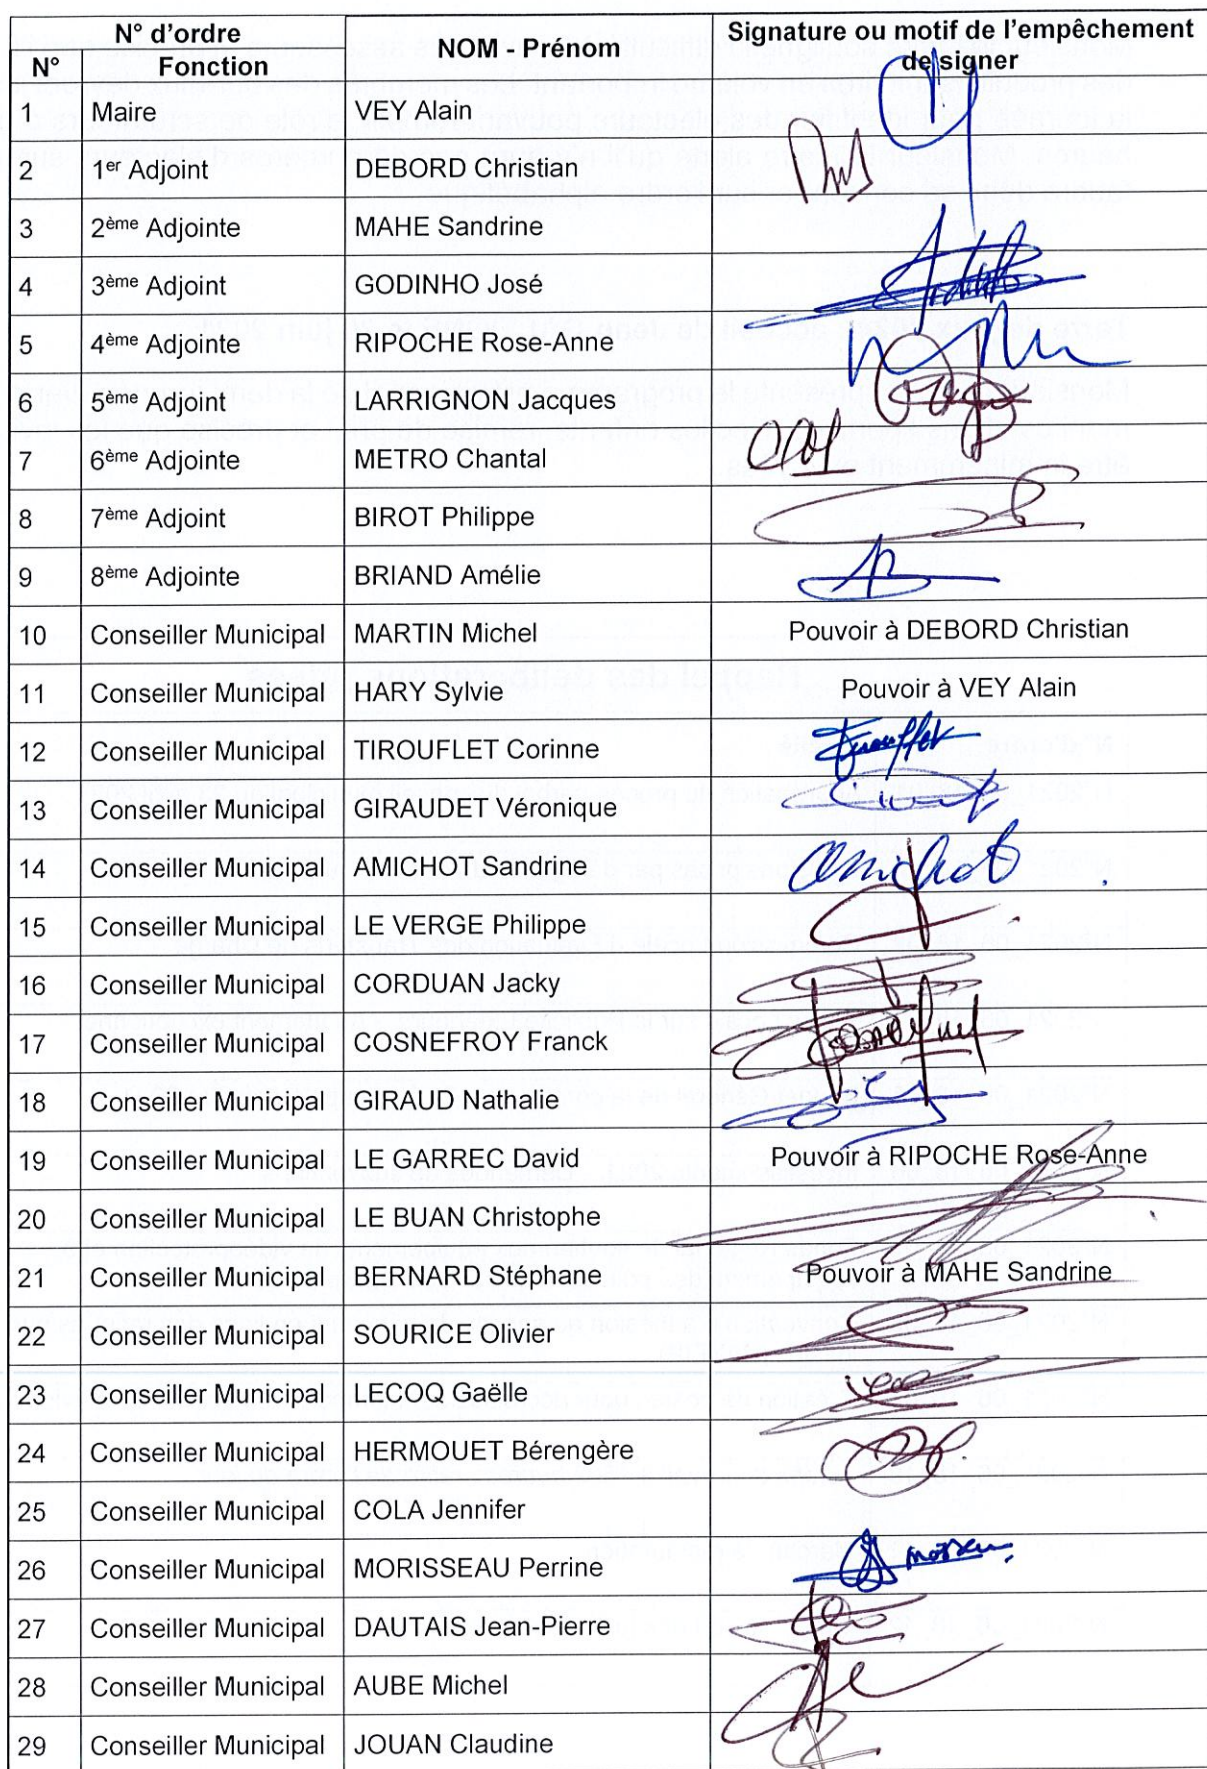 N° d'ordre
NOM - Prénom
Signature ou motif de l'empêchement
N° Fonction
de signer
1 Maire VEY Alain
2 1er Adjoint DEBORD Christian
3 2ème Adjointe MAHE Sandrine
4 3ème Adjoint GODINHO José
5 4ème Adjointe RIPOCHE Rose-Anne
6 5ème Adjoint LARRIGNON Jacques
7 6ème Adjointe METRO Chantal
8 7ème Adjoint BIROT Philippe
9 8ème Adjointe BRIAND Amélie
10 Conseiller Municipal MARTIN Michel Pouvoir à DEBORD Christian
11 Conseiller Municipal HARY Sylvie Pouvoir à VEY Alain
12 Conseiller Municipal TIROUFLET Corinne
13 Conseiller Municipal GIRAUDET Véronique
14 Conseiller Municipal AMICHOT Sandrine Amichot
15 Conseiller Municipal LE VERGE Philippe
16 Conseiller Municipal CORDUAN Jacky
17 Conseiller Municipal COSNEFROY Franck
18 Conseiller Municipal GIRAUD Nathalie
19 Conseiller Municipal LE GARREC David Pouvoir à RIPOCHE Rose-Anne
20 Conseiller Municipal LE BUAN Christophe
21 Conseiller Municipal BERNARD Stéphane Pouvoir à MAHE Sandrine
22 Conseiller Municipal SOURICE Olivier
23 Conseiller Municipal LECOQ Gaëlle
24 Conseiller Municipal HERMOUET Bérengère
25 Conseiller Municipal COLA Jennifer
26 Conseiller Municipal MORISSEAU Perrine
27 Conseiller Municipal DAUTAIS Jean-Pierre
28 Conseiller Municipal AUBE Michel
29 Conseiller Municipal JOUAN Claudine